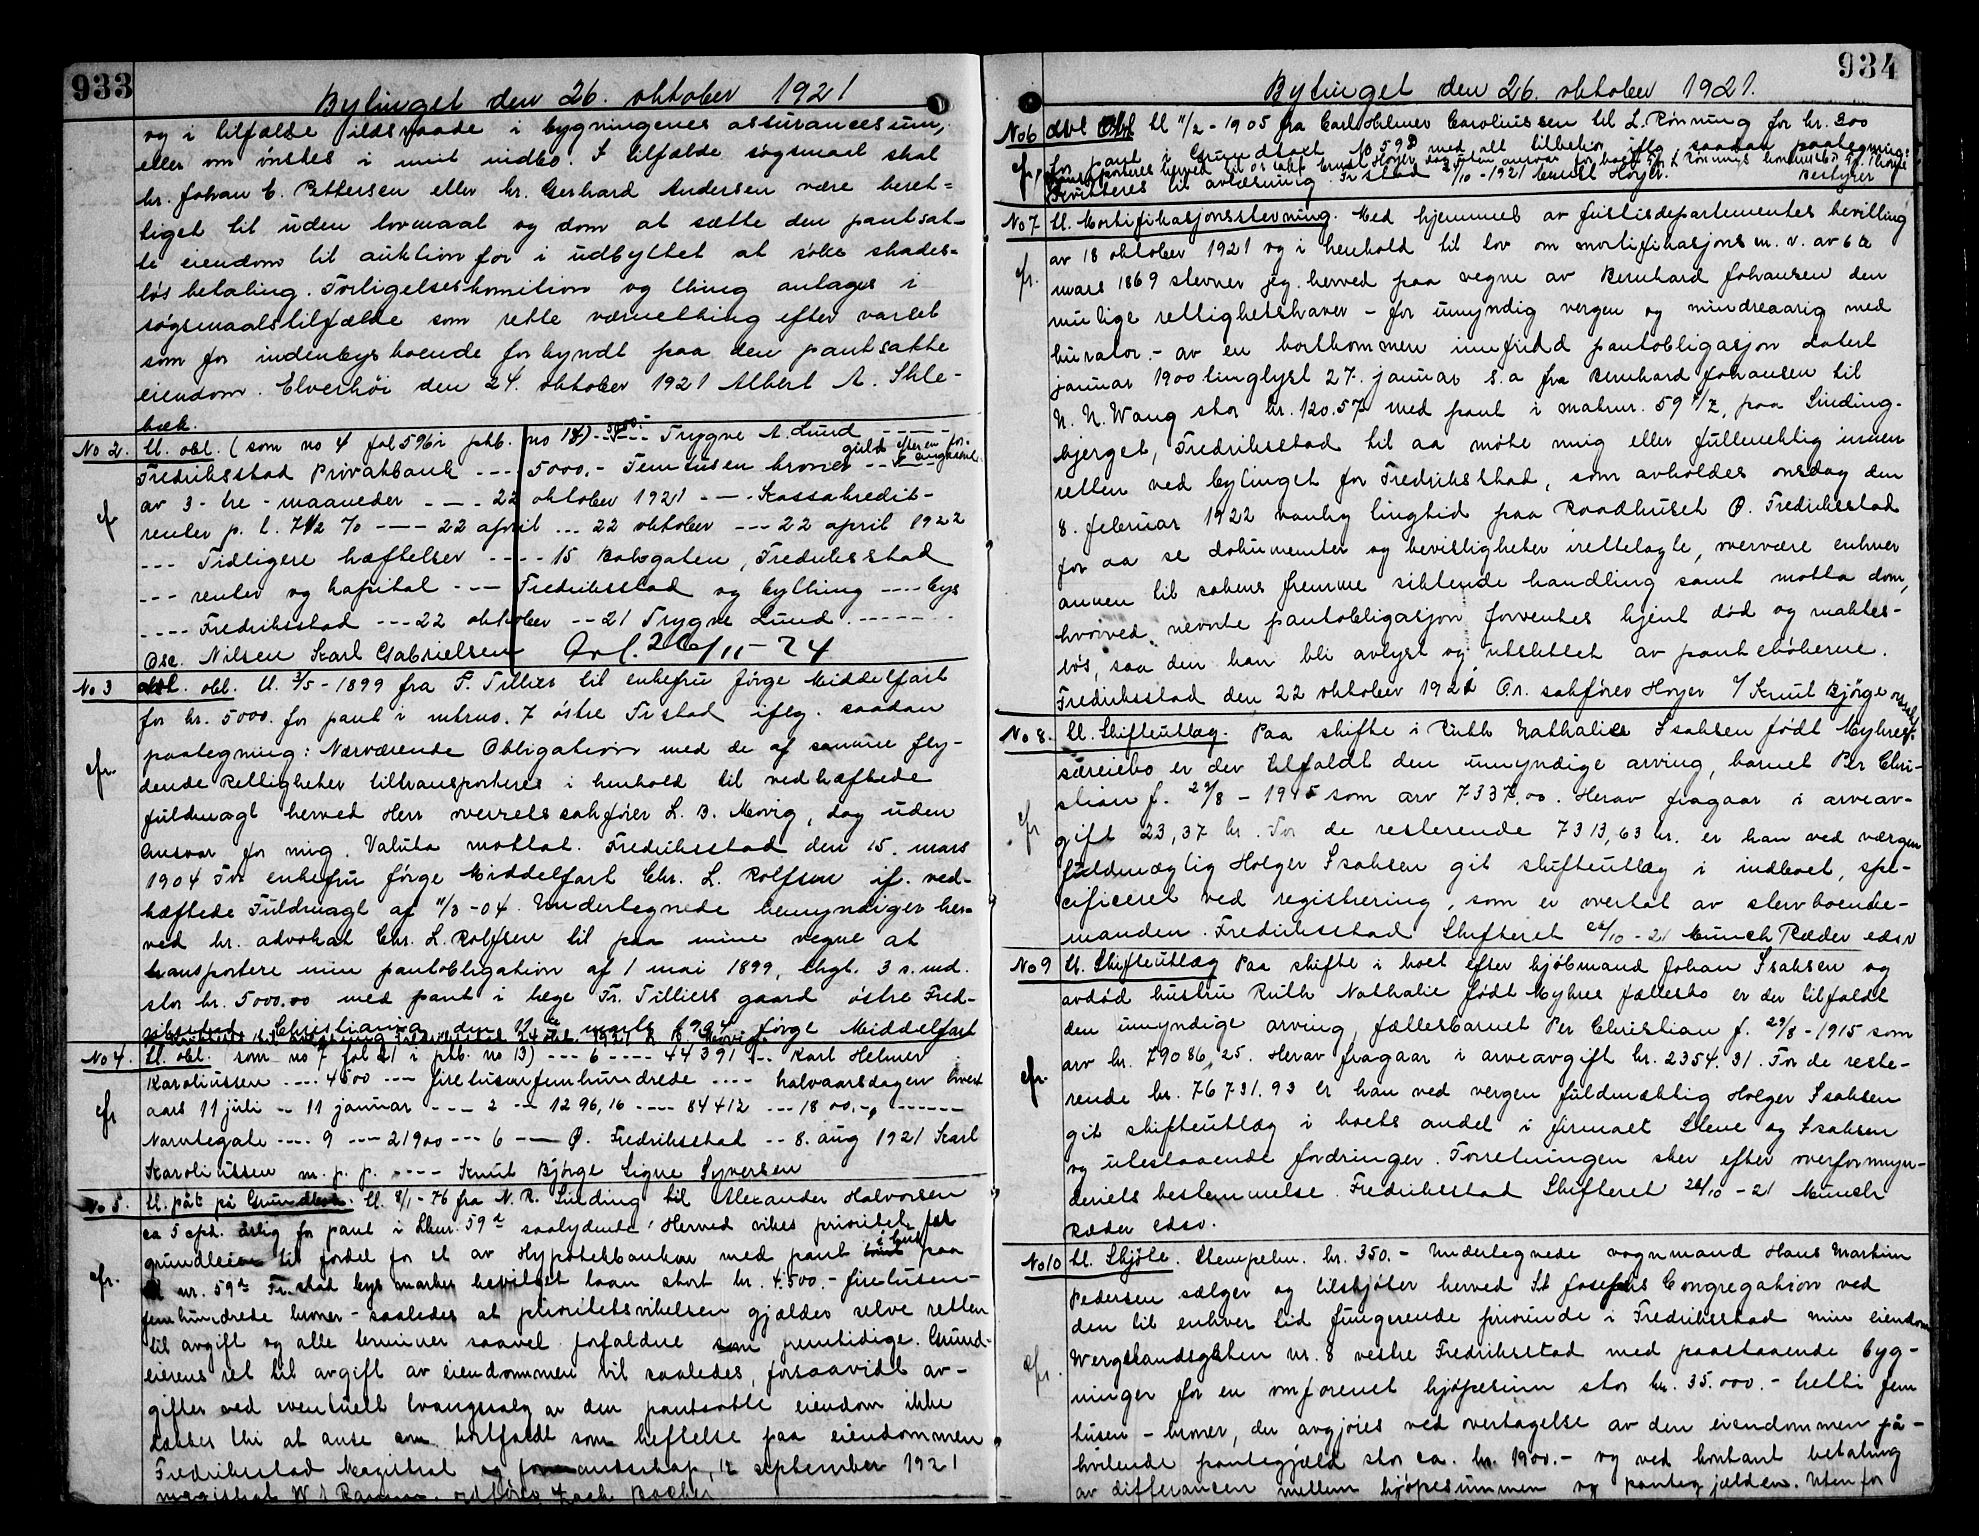 933
Bytinget den 26. oktober 1921
og i tilfælde ildsvaade i bygningenes assurancesum,
eller om ønskes i mit indbo. I tilfælde søgsmaal skal
hr. Johan C. Pettersen eller hr. Gerhard Andersen være beret-
tiget til uden lovmaal og dom at sætte den pantsat-
te eiendom til auktion for i udbyttet at søke skades-
løs betaling. Forligelseskomition og thing antages i
søgsmaalstilfælde som rette værnething efter varsel
som for indenbys boende forkyndt paa den pantsatte
eiendom. Elverhøi den 24. oktober 1921 Albert A. Skle-
bæk.
No 2. tl. obl. (som no 4 fol 596 i ptb. no 13) ---- Trygve A. Lund ----
Fredriksstad Privatbank --- 5000.- Femtusen kroner guld efter en for-
av 3 - tre - maaneder --- 22 oktober 1921 --- Kassakredit-
cfr
renter p. t. 7 1/2 % --- 22 april ... 22 oktober --- 22 april 1922
--- Tidligere hæftelser ---- 15 Fredriksstad
--- renter og kapital --- Fredriksstad og bything ---- bys
---- Fredriksstad --- 22 oktober -- 21 Trygve Lund. ------
Osc. Nilsen Karl Gabrielsen Avl. 26/11 - 24
No 3 avl. obl. tl. 3/5 - 1899 fra F. Tillier til enkefru Jørge Middelfart
for kr. 5000. for pant i mtrno. 7 østre Fr.stad iflg. saadan
paategning: Nærværende Obligation med de af samme fly-
cfr.
dende Rettigheter tiltransporteres i henhold til vedhæftede
fuldmagt herved Herr overretssakfører L. B. Mevig, dog uden
Ansvar for mig. Valuta mottat. Fredriksstad den 15. mars
1904 For enkefru Jørge Middelfart Chr. L. Rolfsen if. ved-
hæftede Fuldmagt af 11/3 - 04. Undertegnede bemyndiger her-
ved hr. advokat Chr. L. Rolfsen til paa mine vegne at
transportere min pantobligation af 1 mai 1899, thgl. 3 s. md.
stor kr. 5000.00 med pant i læge Fr. Tilliers gaard østre Fred-
riksstad. Christiania den 11te marts 1904 Jørge Middelfart
Kvitteres til avlæsning Fredriksstad 24 okt. 1921 L. B. Mevig.
No 4. tl. obl. (som no 7 fol 21 i ptb. no 13) --- 6 ---- 44391 --- Karl Helmer
Karoliussen ---- 4500 --- firetusenfemhundrede ---- halvaarsdagen hvert
cfr
aars 11 juli -- 11 januar --- 2 -- 1296,16 ---- 84412 --- 18 00.-, ------
Narvtegate ---- 9 --- 21900 --- 6 --- Ø. Fredriksstad -- 8. aug 1921 Karl
Karoliussen m. p. p. ---- Knut Bjørge Signe Syversen
No 5. tl. påt på Grundbrev. tl. 8/1 - 76 fra N. R. Sinding til Alexander Halvorsen
ca 5 spd. årlig for pant i Lknr. 59 saalydende: Herved vikes prioritet for
grundleien til fordel for et av Hypotekbanken med pant i huset paa
cfr.
nr. 59 Fr.stad bys marker bevilget laan stort kr. 4.500.- firetusen-
femhundrede kroner - saaledes at prioritetsvikelsen gjælder selve retten
til avgift og alle terminer saavel forfaldne som fremtidige. Grund-
eierens ret til avgift av eiendommen vil saaledes, forsaavidt av-
gifter ved eventuelt tvangssalg av den pantsatte eiendom ikke
dækkes bli at anse som bortfaldt som heftelse paa eiendommen
Fredriksstad Magistrat og formandskap, 12 september 1921
934
Bytinget den 26. oktober 1921.
No 6 avl Obl tl 11/2 - 1905 fra Carl Helmer Caroliussen til L. Rønning for kr. 300
for pant i Grundtaxt No 59 med alt tilbehør iflg. saadan paategning:
cfr.
Kvitteres til avlæsning Fr.stad 21/10 - 1921 Ernst Høyer. Bestyrer
No 7 tl. Mortifikasjonsstevning. Med hjemmel av justisdepartementes bevilling
av 18 oktober 1921 og i henhold til lov om mortifikasjons m. v. av 6te
cfr.
mars 1869 stevner jeg herved paa vegne av Bernhard Johansen den
mulige rettighetshaver - for umyndig vergen og mindreaarig med
kurator - av en bortkommen innfridd pantobligasjon datert
januar 1900 tinglyst 27. januar s. a fra Bernhard Johansen til
N. N. Wang stor kr. 120.57 med pant i matrnr. 59 paa Sinding-
bjerget, Fredriksstad til aa møte mig eller fullmektig innen
retten ved bytinget for Fredriksstad, som avholdes onsdag den
8. februar 1922 vanlig tingtid paa Raadhuset Ø. Fredriksstad
for aa se dokumenter og bevisligheter irettelagte, overvære enhver
annen til sakens fremme siktende handling samt motta dom,
hvorved nevnte pantobligasjon forventes kjent død og maktes-
løs, saa den kan bli avlyst og utslettet av pantebøkerne.
Fredriksstad den 22 oktober 1921 O.r. sakfører Høyer e/ Knut Bjørge
No 8. tl. Skifteutlæg. Paa skifte i Ruth Nathalies Isaksen født Myhres
særeiebo er der tilfaldt den umyndige arving, barnet Per Chri-
cfr
stian f. 29/8 - 1915 som arv 7337.00. Herav fragaar i arveav-
gift 23,37 kr. For de resterende 7313,63 kr. er han ved værgen
fuldmægtig Holger Isaksen git skifteutlæg i indboet, spe-
cificeret ved registrering, som er overlat av stervboende-
manden. Fredriksstad Skifteret 22/10 - 21 Münch Ræder edsv
No 9 tl. Skifteutlæg Paa skifte i boet efter kjøbmand Johan Isaksen og
avdød hustru Ruth Nathalie født Myhres fællesbo er der tilfaldt
den umyndige arving, fællesbarnet Per Christian f. 29/8 - 1915 som
arv kr. 79086,25. Herav fragaar i arveavgift kr. 2354.31. For de reste-
cfr.
rende kr. 76731.93 er han ved vergen fuldmektig Holger Isaksen
git skifteutlæg i boets andel i firmaet Stene og Isaksen
og utestaaende fordringer. Forretningen sker efter overformyn-
deriets bestemmelse. Fredriksstad Skifteret 22/10 - 21 Münch
Ræder edsv.
No 10 tl. Skjøte. Stempelm. kr. 350.- Undertegnede vognmand Hans Martin
Pedersen sælger og tilskjøter herved St Josephs Congregation ved
den til enhver tid fungerende priorinde i Fredriksstad min eiendom
cfr.
Wergelandsgaten nr. 8 vestre Fredriksstad med paastaaende byg-
ninger for en omforenet kjøpesum stor kr. 35.000.- tretti fem
tusen - kroner, der avgjøres ved overtagelse av den eiendommen på-
hvilende pantegjæld stor ca. kr. 1900.- og ved kontant betaling
av differancen mellem kjøpesummen og pantegjælden. Uten for